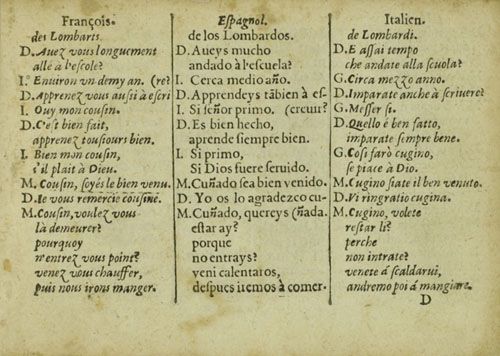 François.
des Lombarts
D. Auez vous longuement
allé à l'eſcole?
I. Enuiron vn demy an. (re?
D. Apprenez vous auſſi à eſcri
I. Ouy mon couſin.
D. C'eſt bien fait,
apprenez touſiours bien.
I. Bien mon couſin,
s'il plait à Dieu.
M. Couſin, ſoyés le bien venu.
D. Ie vous remercie couſine.
M. Couſin, voulez vous
là demeurer?
pourquoy
n'entrez vous point?
venez vous chauffer,
puis nous irons manger.
Eſpagnol.
de los Lombardos.
D. Aueys mucho
andado à l'eſcuela?
I. Cerca medio año.
D. Apprendeys tãbien à eſ-
I. Si ſeñor primo. (creuir?
D. Es bien hecho,
aprende ſiempre bien.
I. Si primo,
Si Dios fuere ſeruido.
M. Cuñado ſea bien venido.
D. Yo os lo agradezco cu-
M. Cuñado, quereys (ñada.
eſtar ay?
porque
no entrays?
veni calentaros,
deſpues iremos à comer.
Italien.
de Lombardi.
D. E aſſai tempo
che andate alla ſcuola?
G. Circa mezzo anno.
D. Imparate anche à ſcriuere?
G. Meſſer ſi.
D. Quello è ben fatto,
imparate ſempre bene.
G. Coſi farò cugino,
ſe piace à Dio.
M. Cugino ſiate il ben venuto.
D. Vi ringratio cugina.
M. Cugino, volete
reſtar li?
perche
non intrate?
venete à ſcaldarui,
andremo poi à mangiare.
D